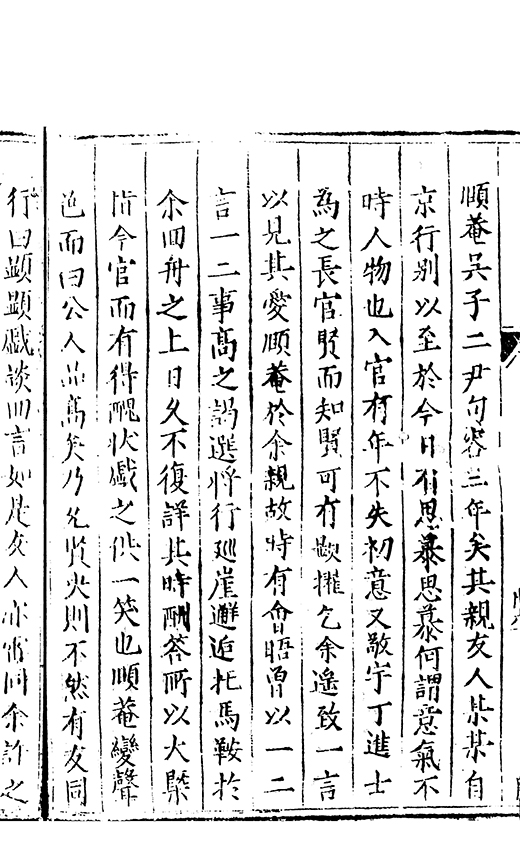 順菴吳子二尹句容三年矣其親友人某某自
京行别以至於今日有思慕思慕何謂意氣不
時人物也入官有年不失初意又敬宇丁進士
為之長官賢而知賢可有歡擢乞余遙致一言
以見其愛順菴於余親故時有會晤曽以一二
言一二事高之謁選將行廵崖邂逅托馬鞍於
余回舟之上日久不復詳其時酬答所以大槩
惜今官而有得醜狀戲之供一笑也順菴變聲
色而曰公人品高矣乃允賢夫則不然有友同
行曰顯顯戲談而言如是友人亦嘗同余許之